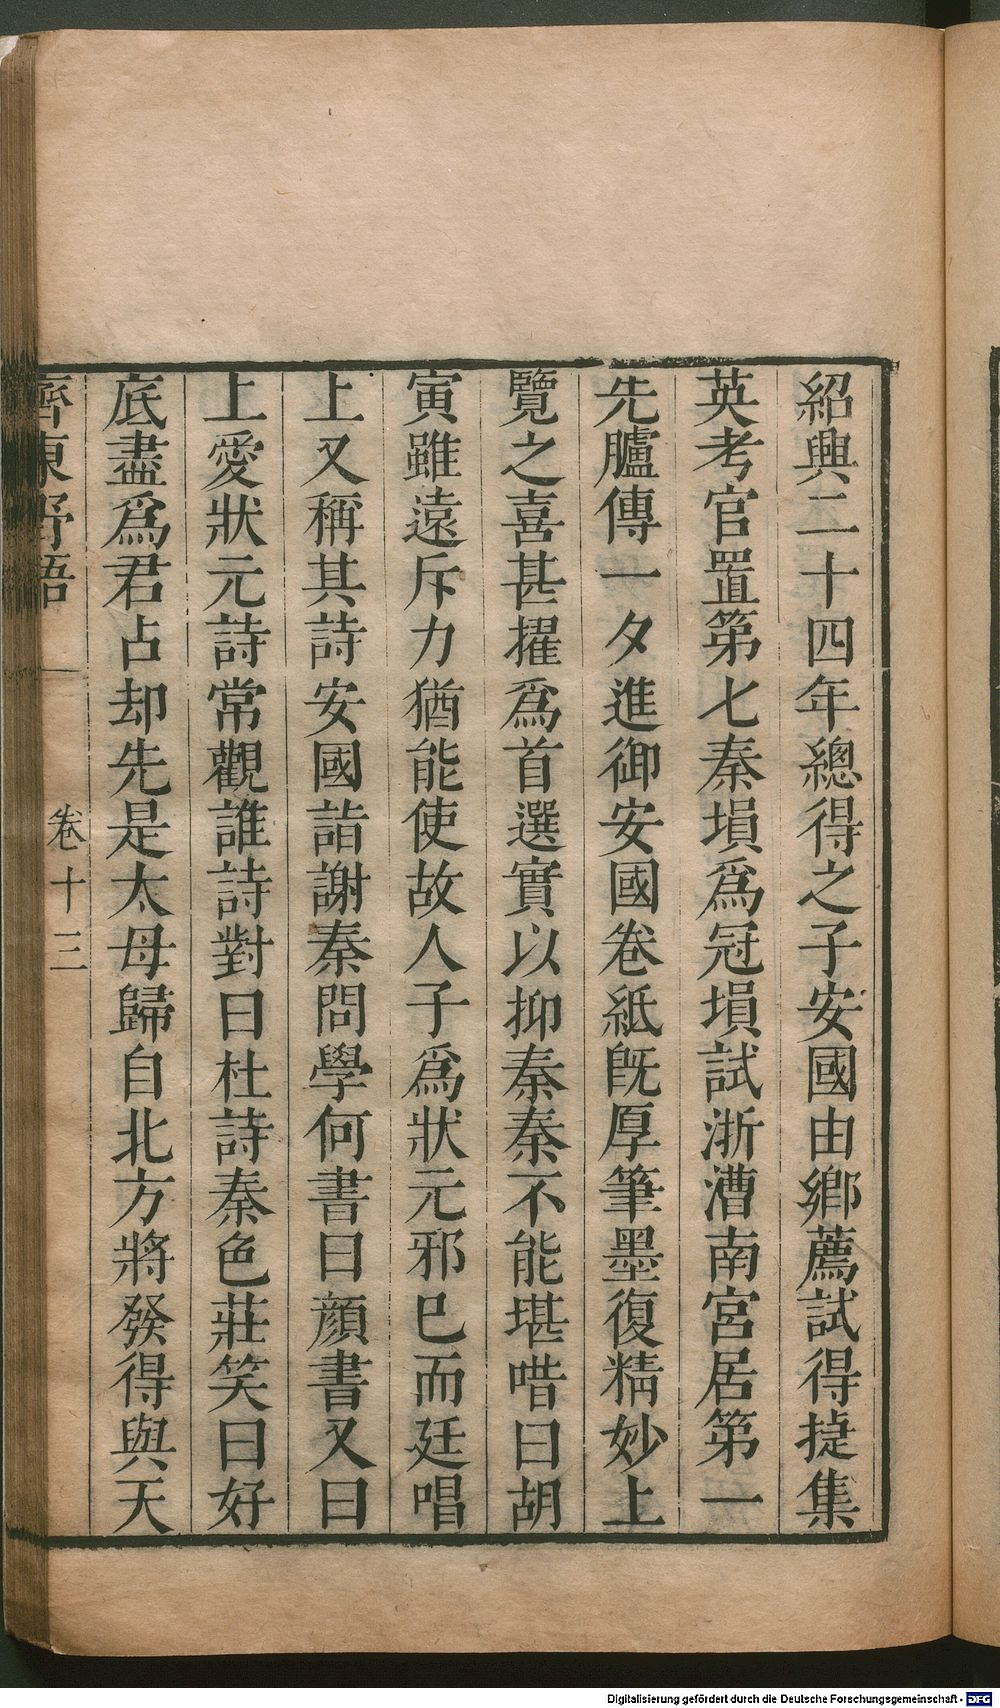 紹興二十四年總得之子安國由鄉薦試得捷集
英考官置第七秦塤爲冠塤試浙漕南宮居第一
先臚傳一夕進御安國卷紙旣厚筆墨復精妙上
覽之喜甚擢爲首選實以抑秦秦不能堪唶曰胡
寅雖遠斥力猶能使故人子爲狀元邪巳而廷唱
上又稱其詩安國詣謝秦問學何書曰顔書又曰
上愛狀元詩常觀誰詩對曰杜詩秦色莊笑曰好
底盡爲君占却先是太母歸自北方將發得與天
齊東野語 卷十三
Digitalisierung gefördert durch die Deutsche Forschungsgemeinschaft - DFG